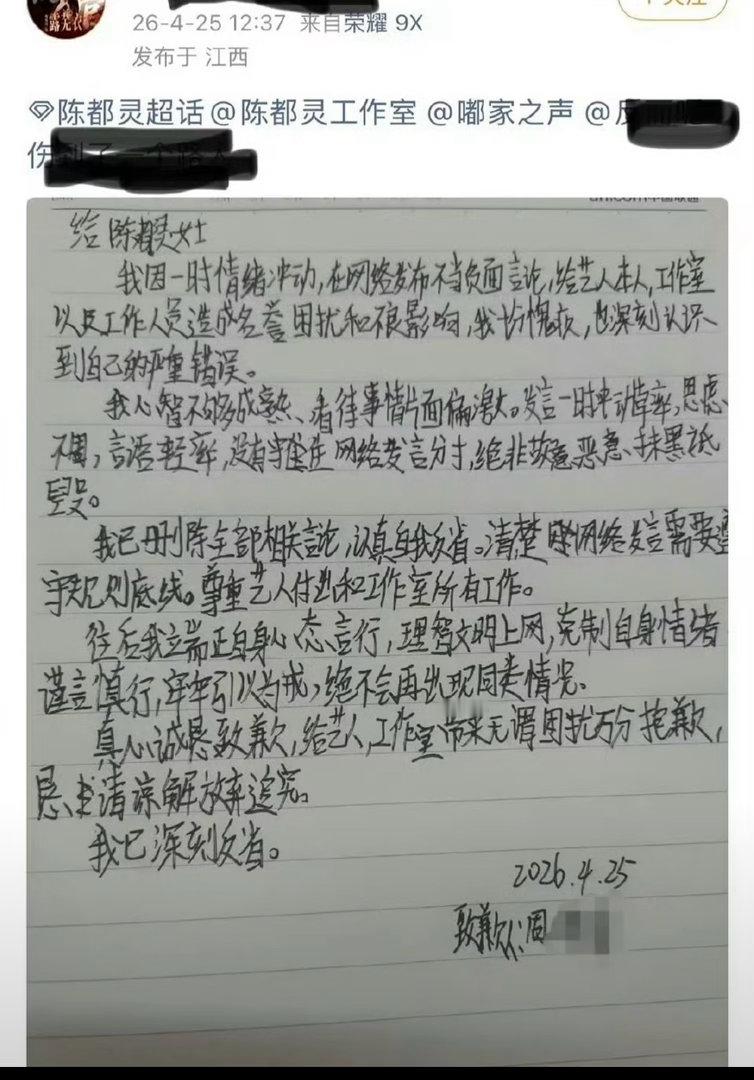 26-4-25 12:37 来自荣耀 9X
发布于 江西
陈都灵超话@陈都灵工作室 @嘟家之声 @反
伤到了一个路
给陈都灵女士
我因一时情绪冲动,在网络发布不当负面言论,给艺人本人,工作室
以及工作人员造成名誉困扰和不良影响,我十分愧疚,也深刻认识
到自己的严重错误。
我心智不够成熟、看待事情片面偏激。发言一时冲动草率,思虑
不周,言语轻率,没有守住网络发言分寸,绝非故意恶意、抹黑诋
毁。
我已删除全部相关言论,认真自我反省。清楚网络发言需要遵
守规则底线。尊重艺人付出和工作室所有工作。
往后我端正自身心态言行,理智文明上网,克制自身情绪
谨言慎行,牢牢引以为戒,绝不会再出现同类情况。
真心诚恳致歉,给艺人,工作室带来无谓困扰万分抱歉,
恳请谅解放弃追究。
我已深刻反省。
2026.4.25
致歉人:周